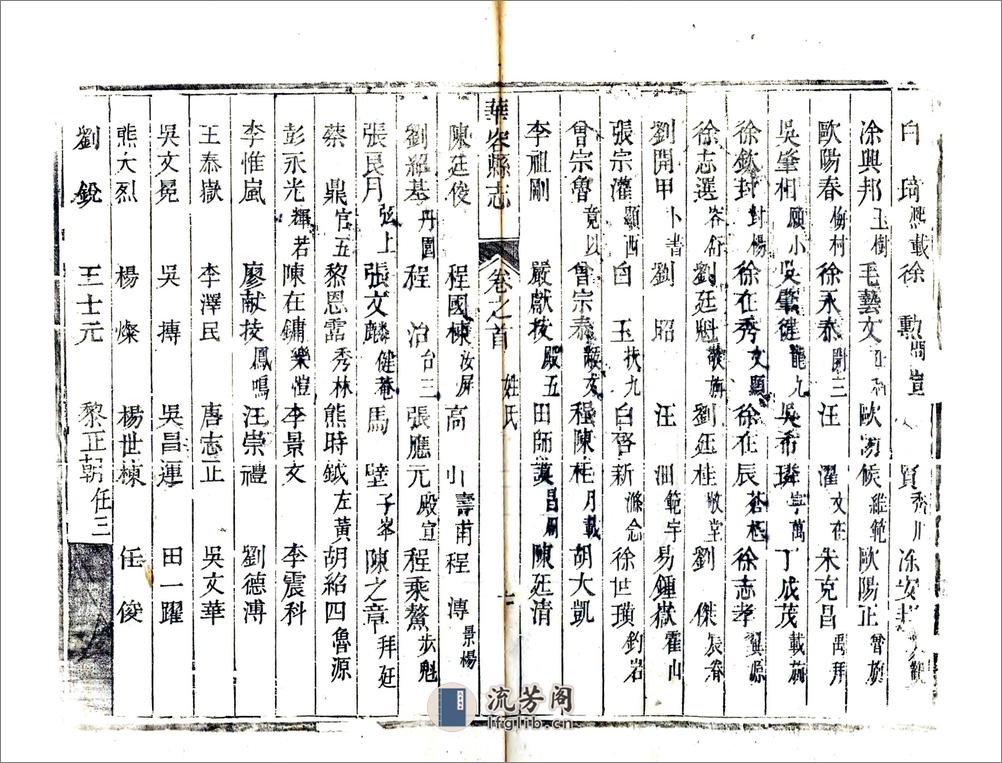 白琦熙載 徐勲 賢秀川 涂安
涂興邦玉樹 毛藝文 歐陽候維範 歐陽正
歐陽春 徐永泰開三 汪濯文在 朱克昌禹拜
吳肇相願小 吳肇健龍九 吳希璘寧萬 丁成茂載
徐欽封對楊 徐在秀文顯 徐在辰 徐志孝翼源
徐志選 劉廷魁 劉廷桂敬堂 劉傑辰春
劉開甲卜書 劉昭 汪 範宇 易鍾嶽霍山
張宗灌顯西 白玉扶九 白啓新滌念 徐世璜釣岩
曾宗魯竟以 曾宗泰 程陳柱月載 胡大凱
李祖剛 嚴獻技殿五 田師謨昌嗣 陳廷清
華容縣志 卷之首 姓氏
陳廷俊 程國棟汝屏 高 壽甫 程溥景楊
劉紹基丹園 程治台三 張應元殿宣 程乘鰲步魁
張民月弦上 張文麟健菴 馬壁子峯 陳之章拜廷
蔡鼎官五 黎恩霑秀林 熊時鉞左黃 胡紹四魯源
彭永光輝若 陳在鏞樂愷 李景文 李震科
李惟嵐 廖献技鳳鳴 汪崇禮 劉德溥
王泰嶽 李澤民 唐志正 吳文華
吳文冕 吳摶 吳昌運 田一躍
熊大烈 楊燦 楊世棟 任俊
劉銳 王士元 黎正朝任三